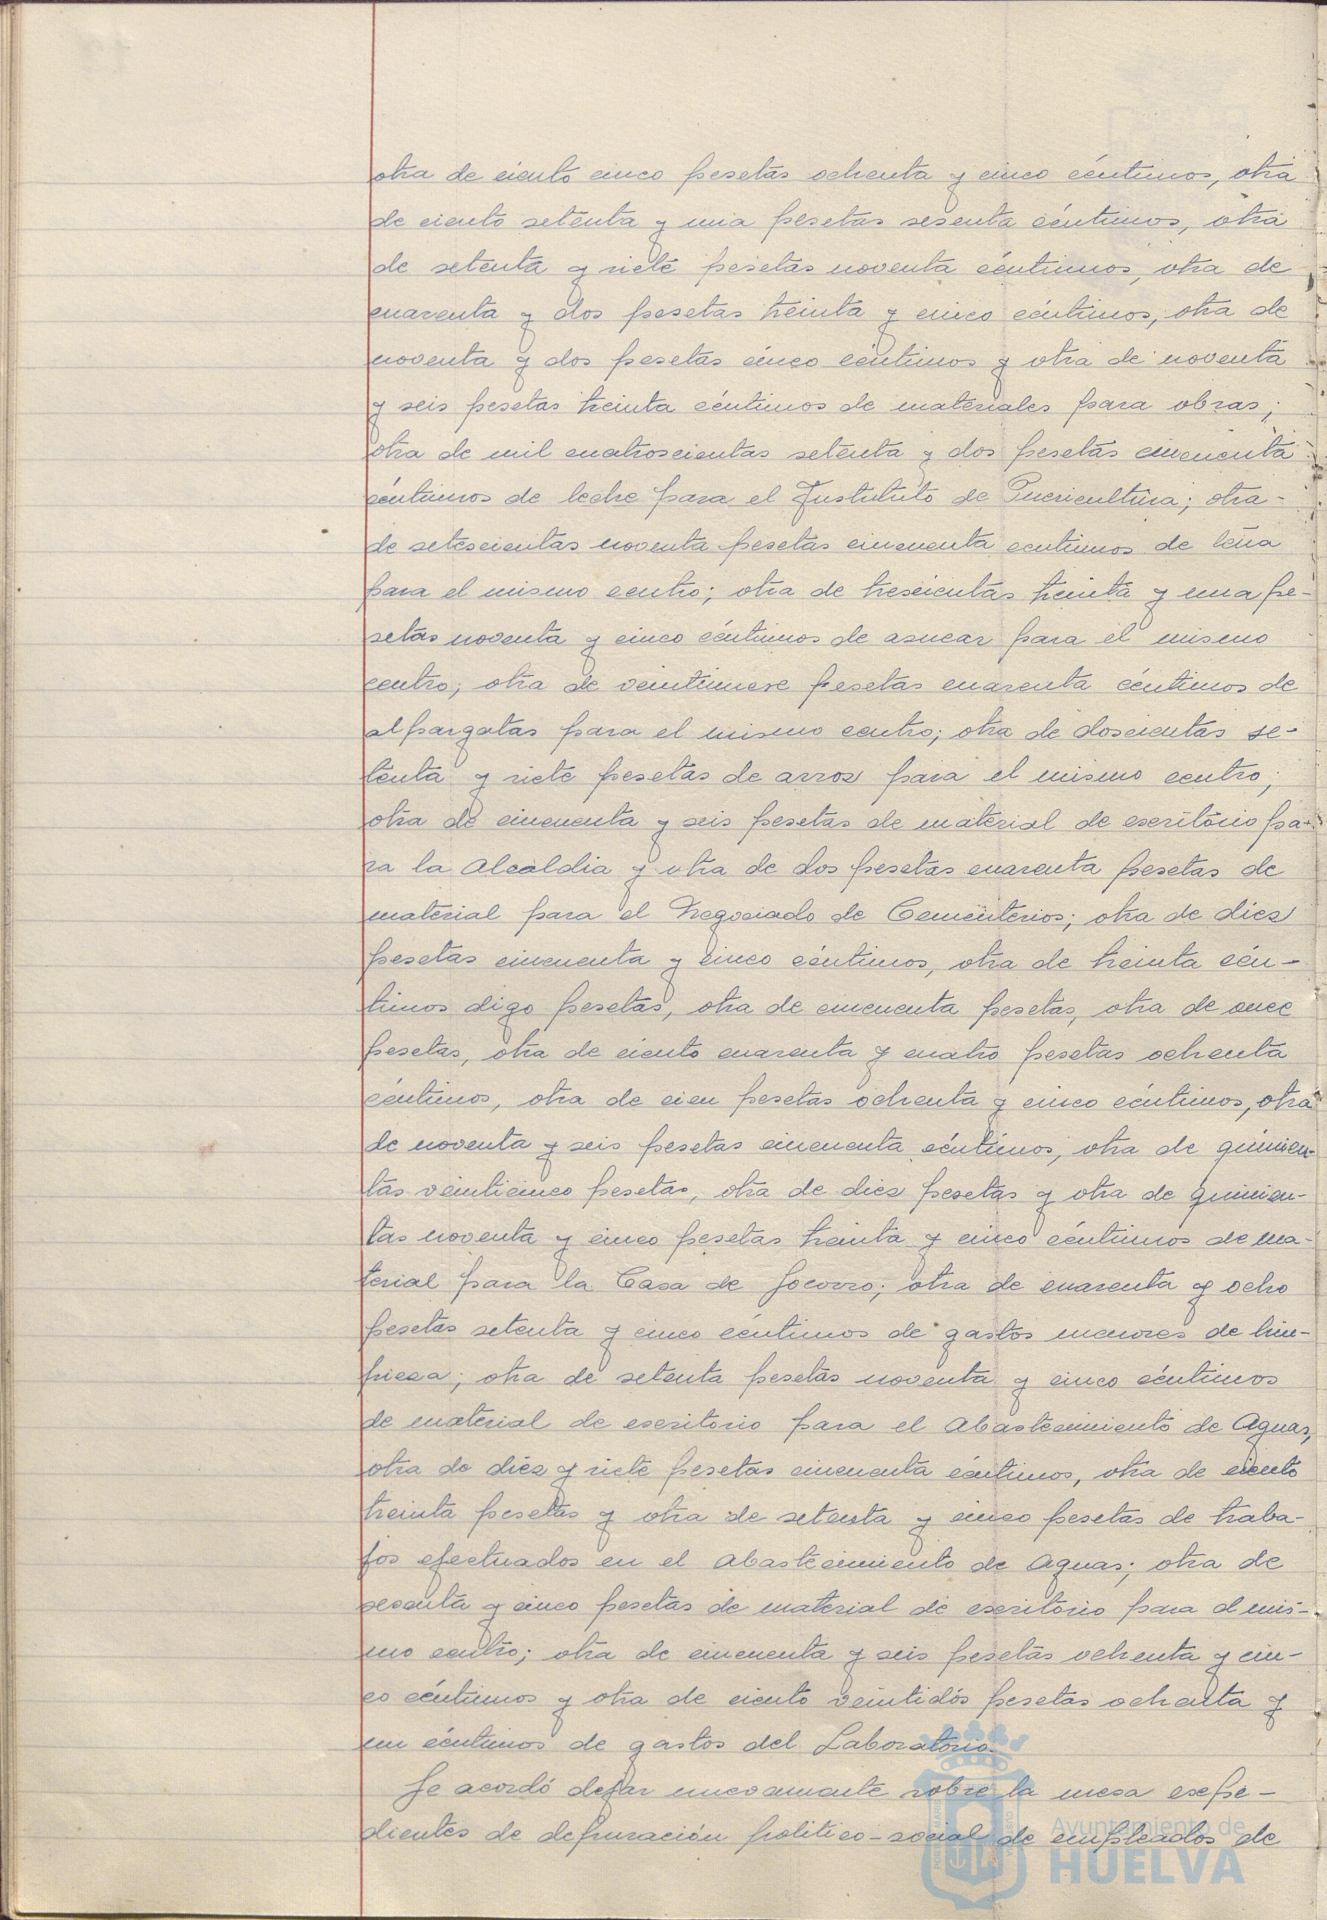 otra de ciento cinco pesetas ochenta y cinco céntimos, otra
de ciento setenta y una pesetas sesenta céntimos, otra
de setenta y siete pesetas noventa céntimos, otra de
cuarenta y dos pesetas treinta y cinco céntimos, otra de
noventa y dos pesetas cinco céntimos y otra de noventa
y seis pesetas treinta céntimos de materiales para obras;
otra de mil cuatroscientas setenta y dos pesetas cincuenta
céntimos de leche para el Instituto de Puericultura; otra
de setescientas noventa pesetas cincuenta centimos de leña
para el mismo centro; otra de trescientas treinta y una pe-
setas noventa y cinco céntimos de asucar para el mismo
centro; otra de veintinueve pesetas cuarenta céntimos de
alpargatas para el mismo centro; otra de doscientas se-
tenta y siete pesetas de arroz para el mismo centro;
otra de cincuenta y seis pesetas de material de escritorio pa-
ra la Alcaldia y otra de dos pesetas cuarenta pesetas de
material para el Negociado de Cementerios; otra de diez
pesetas cincuenta y cinco céntimos, otra de treinta cén-
timos digo pesetas, otra de cincuenta pesetas, otra de once
pesetas, otra de ciento cuarenta y cuatro pesetas ochenta
céntimos, otra de cien pesetas ochenta y cinco céntimos, otra
de noventa y seis pesetas cincuenta céntimos, otra de quinien-
tas veinticinco pesetas, otra de diez pesetas y otra de quinien-
tas noventa y cinco pesetas treinta y cinco céntimos de ma-
terial para la Casa de Socorro; otra de cuarenta y ocho
pesetas setenta y cinco céntimos de gastos menores de lim-
pieza; otra de setenta pesetas noventa y cinco céntimos
de material de escritorio para el Abastecimiento de Aguas,
otra de diez y siete pesetas cincuenta céntimos, otra de ciento
treinta pesetas y otra de setenta y cinco pesetas de traba-
jos efectuados en el Abastecimiento de Aguas; otra de
sesenta y cinco pesetas de material de escritorio para el mis-
mo centro; otra de cincuenta y seis pesetas ochenta y cin-
co céntimos y otra de ciento veintidós pesetas ochenta y
un céntimos de gastos del Laboratorio.
Se acordó dejar nuevamente sobre la mesa expe-
dientes de depuración político-social de empleados de
Ayuntamiento de
HUELVA